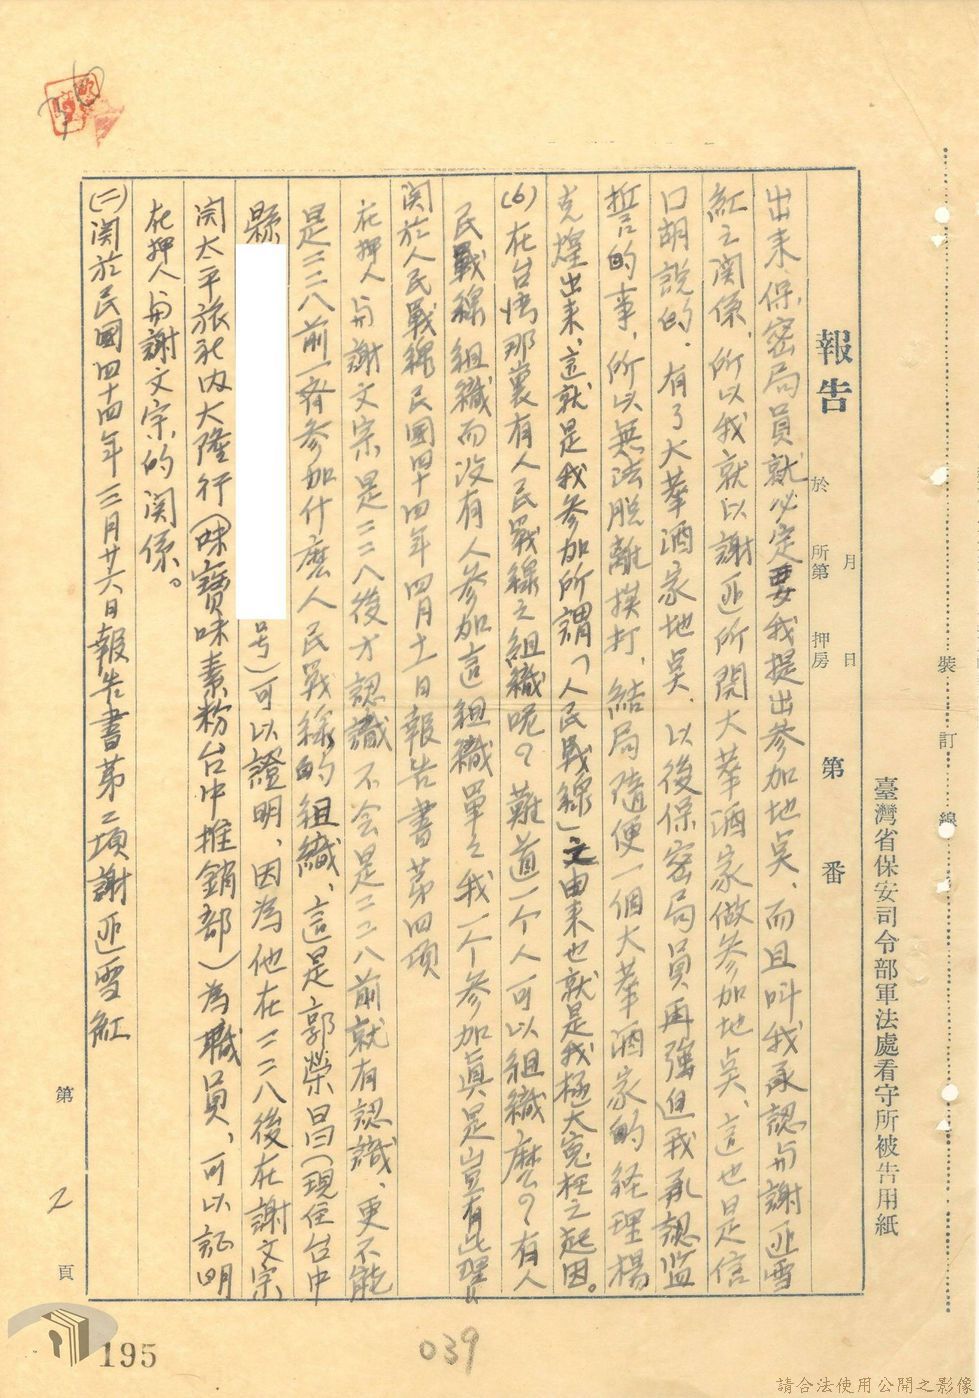 報告
於 所第 押房 第 番
月 日
臺灣省保安司令部軍法處看守所被告用紙
裝訂線
出来、保密局員就必定要我提出参加地矣、而且叫我承認与謝匪雪
紅之関係、所以我就以謝匪所開大華酒家做参加地矣、這也是信
口胡説的、有了大華酒家地矣、以後保密局員再強迫我承認监
誓的事、所以無法脱離摸打、结局隨便一個大華酒家的经理楊
克煌出来、這就是我参加所謂「人民戰線」之由来也就是我極大寃枉之起因。
(6)在台湾那裏有人民戰線之组織呢？難道一个人可以组織麽？有人
民戰線组織而没有人参加這组織單之我一个参加真是豈有此理!!
関於人民戰線民国四十四年四月十一日報告書第四項
在押人与謝文宗是二二八後才認識 不会是二二八前就有認識、更不能
是二二八前一齊参加什麽人民戰線的组織、這是郭榮昌(現住台中
縣
号)可以證明、因為他在二二八後在謝文宗
開太平旅社内大隆行(味寶味素粉台中推銷部)為職員、可以証明
在押人与謝文宗的関係。
(二)関於民國四十四年三月廿六日報告書第二項謝匪雪紅
第 2 頁
195
039
請合法使用公開之影像